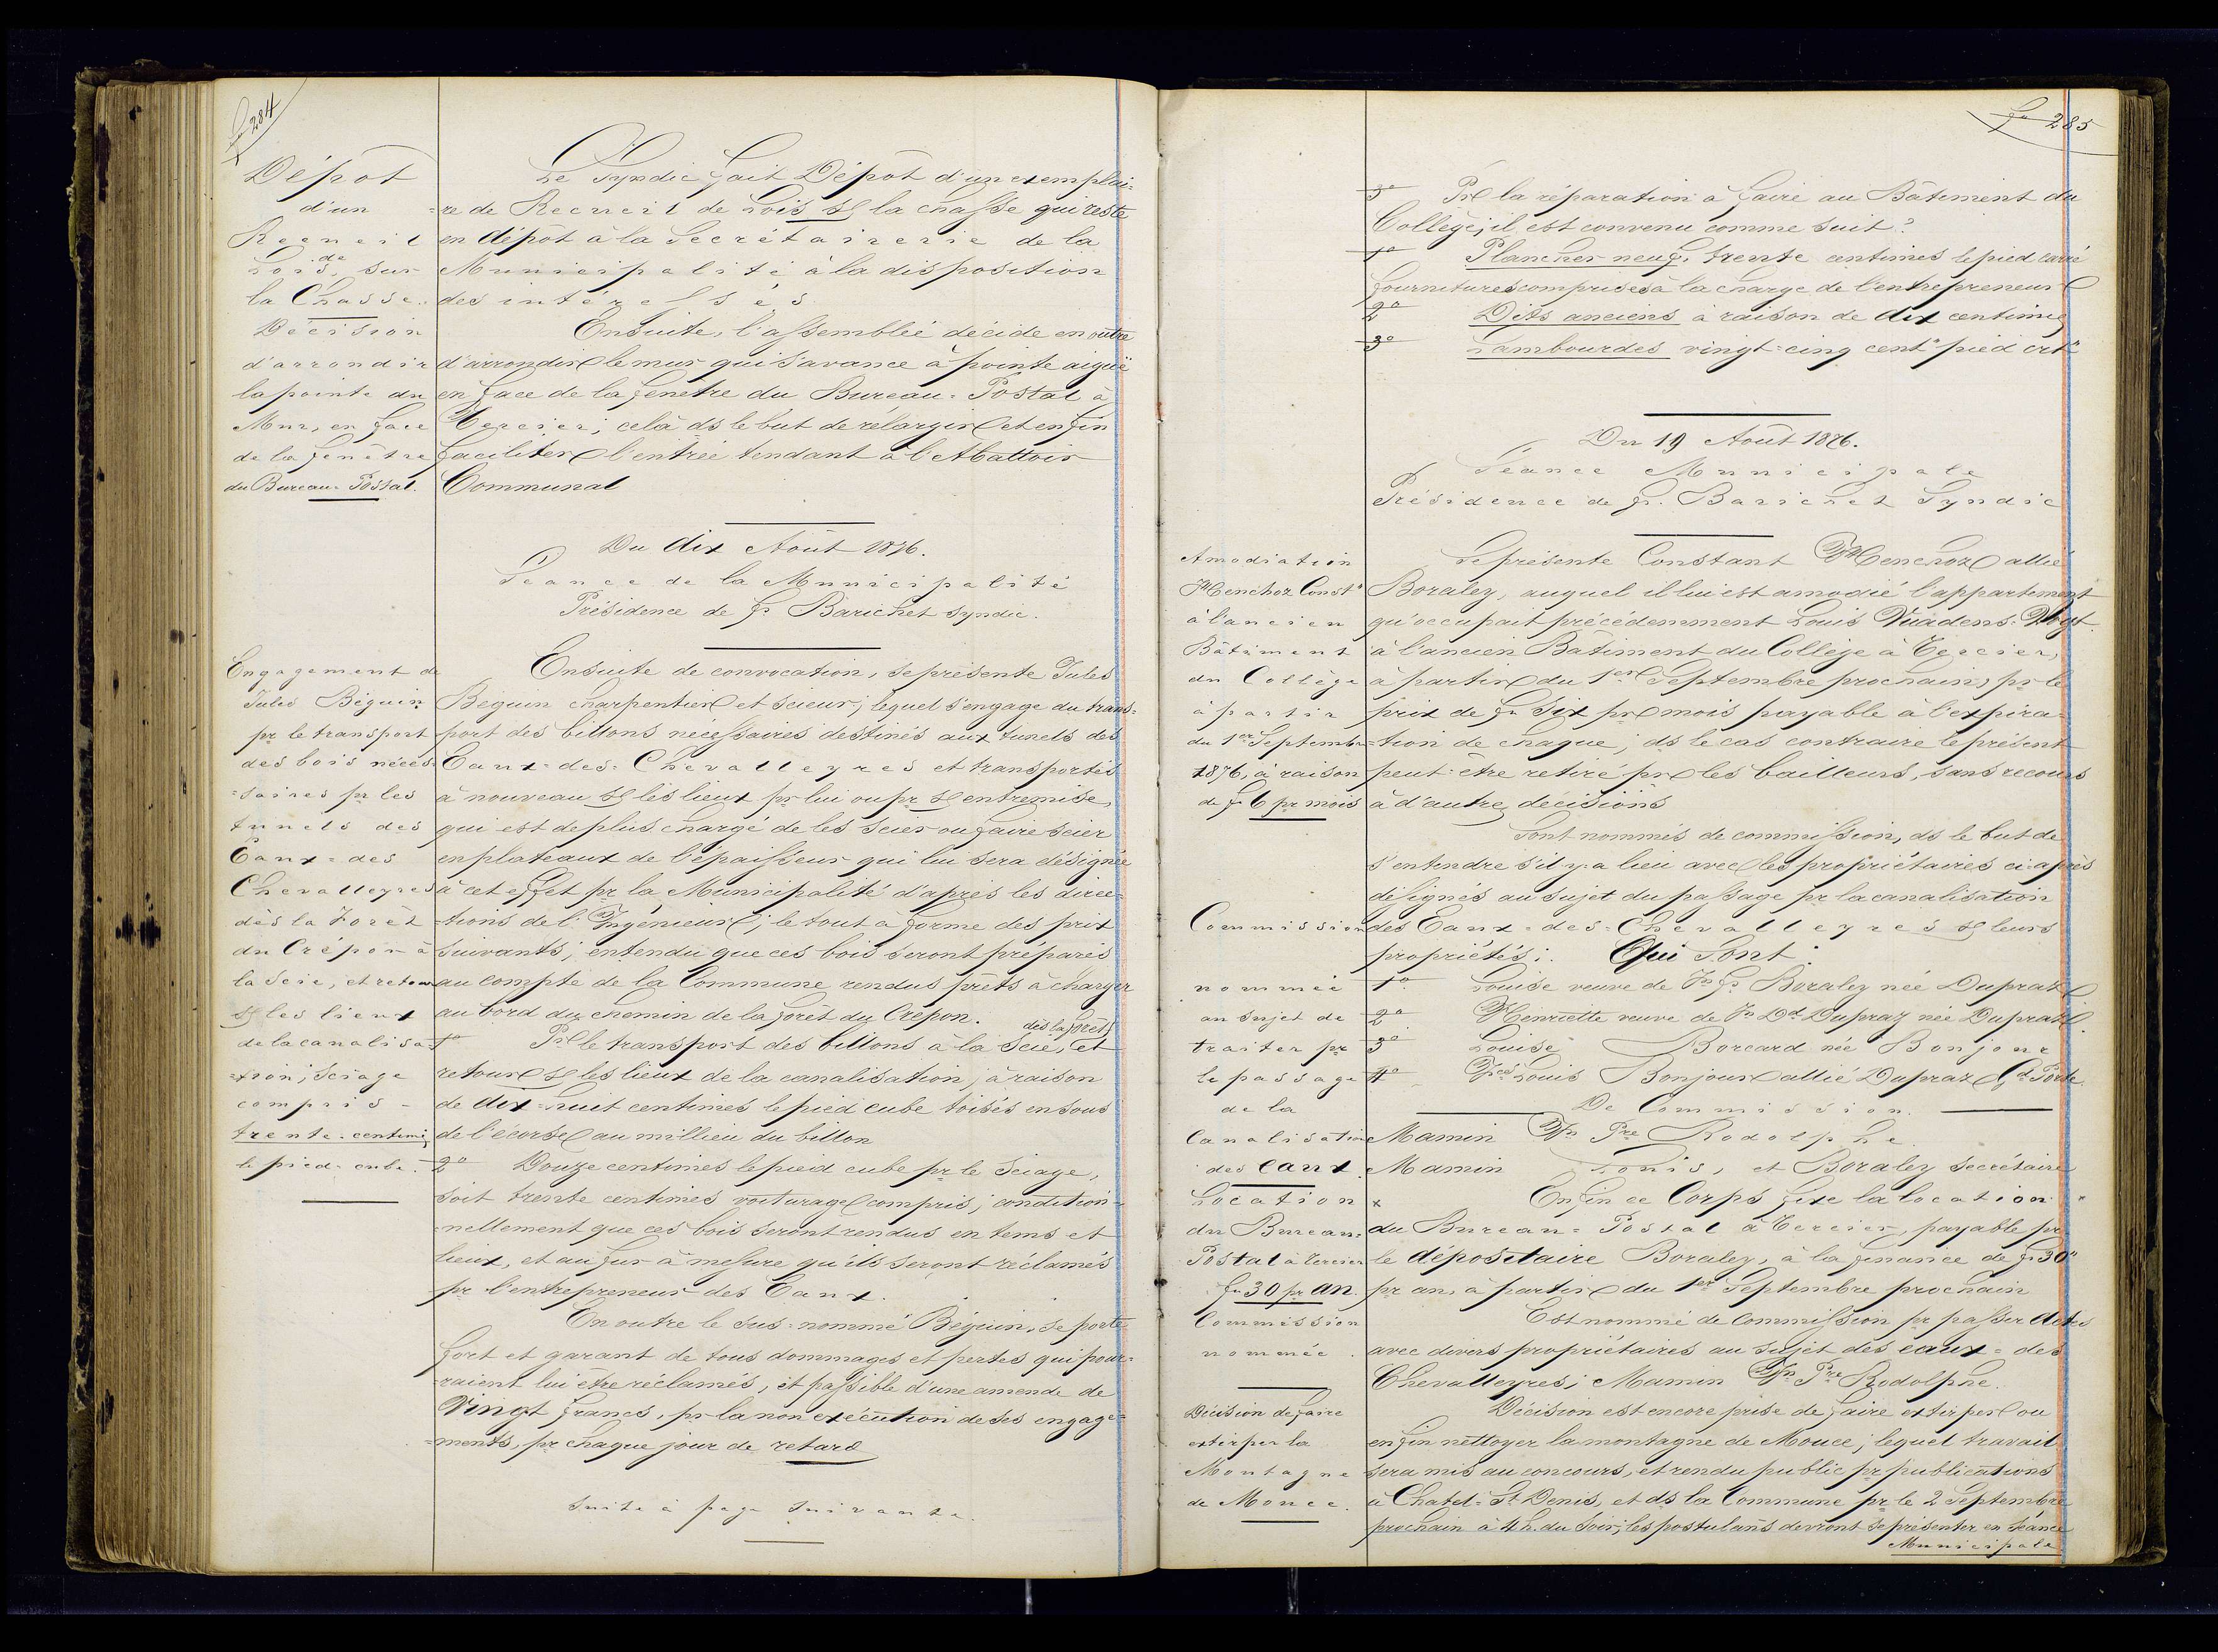 fo 284
Dépôt
d'un
Recueil
de
Lois, sur
la Chasse.
Décision
d'arrondir
la pointe du
Mur, en face
de la fenêtre
du Bureau-Postal.
Le Syndic fait Dépôt d'un exemplai=
=re de Recueil de Lois sr la chasse qui reste
en dépôt à la Secrétairerie de la
Municipalité à la disposition
des intéressés
Ensuite, l'assemblée décide en outre
d'arrondir le mur qui s'avance à pointe aiguë
en face de la fenêtre du Bureau-Postal à
Tercier; celà ds le but de rélargir et enfin
faciliter l'entrée tendant à l'Abattoir
Communal
Du dix Août 1876.
Séance de la Municipalité
Présidence de fs Barichet syndic.
Engagement de
Jules Béguin
pr le transport
des bois néces=
=saires pr les
tunels des
Eaux=des
Chevalleyres
dès la Forêt
du Crépon à
la Scie, et retour
sr les lieux
de la canalisa=
=tion; Sciage
compris -
trente-centimes
le pied-cube.
Ensuite de convocation, se présente Jules
Beguin charpentier et scieur, lequel s'engage du trans=
port des billons nécessaires destinés aux tunels des
Eaux=des=Chevalleyres et transportés
à nouveau sr les lieux pr lui ou pr sr entremise,
qui est de plus chargé de les scier ou faire scier
en plateaux de l'épaisseur qui lui sera désignée
à cet effet pr la Municipalité d'après les direc=
=tions de l'Ingénieur; le tout à forme des prix
suivants; entendu que ces bois seront préparés
au compte de la Commune rendus prêts à charger
au bord du chemin de la forêt du Crépon.
dès la forêt
1o Pr le transport des billons à la Scie, et
retour sr les lieux de la canalisation, à raison
de dix-huit centimes le pied cube toisés en sous
de l'écorse au millieu du billon
2o Douze centimes le pied cube pr le Sciage,
soit trente centimes voiturage compris; condition=
=nellement que ces bois seront rendus en tems et
lieux, et au fur à mesure qu'ils seront réclamés
pr l'entrepreneur des Eaux.
En outre le sus=nommé Béguin, se porte
fort et garant de tous dommages et pertes qui pour=
=raient lui être réclamés, et passible d'une amende de
Vingt francs, pr la non exécution de ses engage=
=ments, pr chaque jour de retard
Suite à page suivante.
fo 285
3o Pr la réparation à faire au Bâtiment du
Collège, il est convenu comme suit:
1o Plancher neuf, trente centimes le pied carré
fournitures comprises à la charge de l'entrepreneur
2o Dits anciens à raison de dix centimes
3o Lambourdes vingt-cinq cents pied crt
Du 19 Août 1876.
Séance Municipale
Présidence de fs. Barichet Syndic
Amodiation
Henchoz Const
à l'ancien
Bâtiment
du Collège
à partir
du 1er Septembre
1876, à raison
de fr 6 pr mois
Se présente Constant Henchoz allié
Boraley, auquel il lui est amodié l'appartement
qu'occupait précédemment Louis Vuadens-Vogt
à l'ancien Bâtiment du Collège à Tercier,
à partir du 1er Septembre prochain, pr le
prix de fr Six pr mois payable à l'expira=
=tion de chaque; ds le cas contraire le présent
peut-être retiré pr les bailleurs, sans recours
à d'autres décisions
Sont nommés de commission, ds le but de
s'entendre s'il y a lieu avec les propriétaires ci-après
désignés au sujet du passage pr la canalisation
des Eaux=des=Chevalleyres sr leurs
propriétés: Qui Sont:
1o Louise veuve de Jn fs Boraley née Dupraz
2o Henriette veuve de Jn Dd Dupraz née Dupraz
3o Louise Borcard née Bonjour
4o Louis Bonjour allié Dupraz
De Commission.
Commission
nommée
au sujet de
traiter pr
le passage
de la
Canalisation
des eaux
Mamin Pre Rodolphe.
Mamin Louis, et Boraley secrétaire
Location
du Bureau=
Postal à Tercier
fr 30 pr an.
Enfin ce Corps fixe la location
du Bureau=Postal à Tercier, payable pr
le dépositaire Boraley, à la finance de fr 30"
pr an, à partir du 1er Septembre prochain
Commission
nommée.
Est nommé de Commission pr passer actes
avec divers propriétaires au sujet des eaux=des
Chevalleyres; Mamin Pre Rodolphe.
Décision de faire
extirper la
Montagne
de Mouce.
Décision est encore prise de faire extirper ou
enfin nettoyer la montagne de Mouce; lequel travail
sera mis au concours, et rendu public pr publications
à Chatel-St Denis, et ds la Commune pr le 2 Septembre
prochain à 4 h. du Soir; les postulans devront se présenter en séance
Municipale